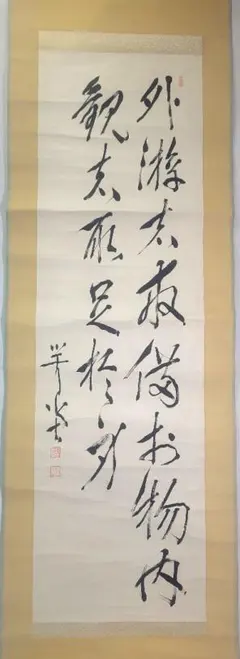 外游者求備於物内
觀者取足於身